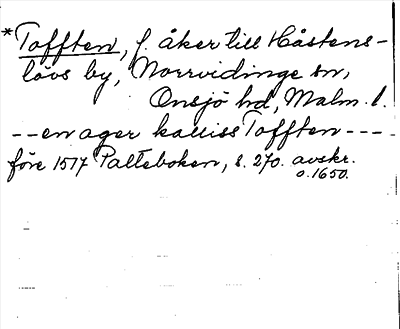 *Tofften, f. åker till Håstens-
lövs by, Norrvidinge sn,
Onsjö hd, Malm. l.
-- en ager kalliss Tofften ---
före 1517 Palteboken, s. 270. avskr.
o. 1650.